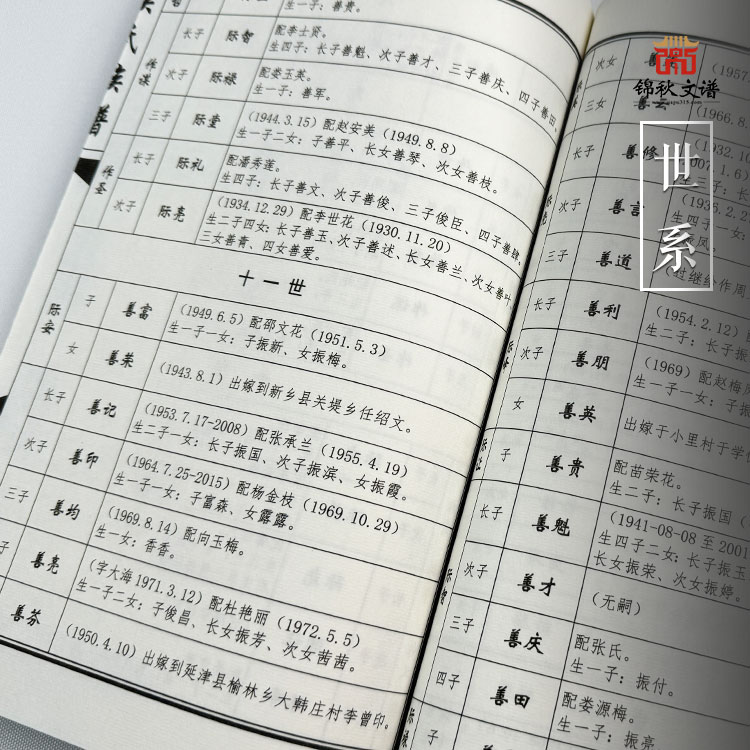 氏族谱
生一子：善贵。
作谋
长子 际智 配李士贤。
生四子：长子善魁、次子善才、三子善庆、四子善田。
次子 际禄 配娄玉英。
生一子：善军。
三子 际堂 (1944.3.15) 配赵安美 (1949.8.8)
生一子二女：子善平、长女善琴、次女善枝。
作圣
长子 际礼 配潘秀莲。
生四子：长子善文、次子善俊、三子俊臣、四子善
次子 际亮 (1934.12.29) 配李世花 (1930.11.20)
生二子四女：长子善玉、次子善述、长女善兰、次女善叶、
三女善菁、四女善爱。
十一世
际安
子 善富 (1949.6.5) 配邵文花 (1951.5.3)
生一子一女：子振新、女振梅。
女 善荣 (1943.8.1) 出嫁到新乡县关堤乡任绍文。
长子 善记 (1953.7.17-2008) 配张承兰 (1955.4.19)
生二子一女：长子振国、次子振滨、女振霞。
次子 善印 (1964.7.25-2015) 配杨金枝 (1969.10.29)
生一子一女：子富森、女露露。
三子 善均 (1969.8.14) 配向玉梅。
生一女：香香。
子 善亮 (字大海 1971.3.12) 配杜艳丽 (1972.5.5)
生一子二女：子俊昌、长女振芳、次女茜茜。
善芬 (1950.4.10) 出嫁到延津县榆林乡大韩庄村李曾印。
锦秋文谱
世系
次女 善 (1957
三女 善云 (1966.8.
长子 善修 1932.10
007.1.6)
次子 善言 (1935.2.2
生四子一女
凤。
三子 善道 (过继给作周
长子 善利 (1954.2.12)
生二子：长子振
次子 善朋 (1969) 配赵梅
生一子一女：子振
女 善英 出嫁于小里村于学
子 善贵 配苗荣花。
生二子：长子振国（
际智
长子 善魁 (1941-08-08 至 2001
生四子二女：长子振玉
长女振荣、次女振婷。
次子 善才 (无嗣)
三子 善庆 配张氏。
生一子：振付。
四子 善田 配娄源梅。
生一子：振亮
子 善军